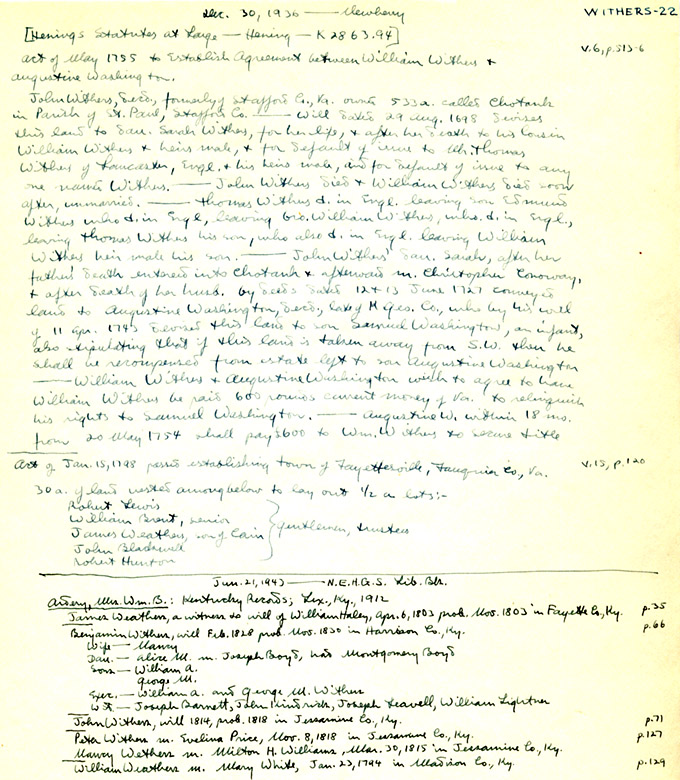 Dec. 30, 1936 — Newberry
WITHERS-22
[Hening's Statutes at Large — Hening — K 2863.94]
Act of May 1755 to Establish Agreement between William Withers &
V.6, p.513-6
Augustine Washington.
John Withers, Decd., formerly of Stafford Co., Va. owned 533a. called Chotank
in Parish of St. Paul, Stafford Co. — Will dated 29 Aug. 1698 devises
this land to dau. Sarah Withers, for her life, & after her death to his cousin
William Withers & heirs male, & for default of issue to Thomas
Withers of Lancaster, Engl. & his heirs male, and for default of issue to any
one named Withers. — John Withers died & William Withers died soon
after, unmarried. — Thomas Withers d. in Engl. leaving son Edmund
Withers who d. in Engl., leaving William Withers, who d. in Engl.,
leaving Thomas Withers his son, who also d. in Engl. leaving William
Withers heir male his son. — John Withers' dau. Sarah, after her
father's death entered into Chotank & afterward m. Christopher Conoway,
& after death of her husb. by deeds dated 12 & 13 June 1727 conveyed
land to Augustine Washington, Decd., late of K Geo. Co., who by his will
of 11 Apr. 1743 devised this land to son Samuel Washington, an infant,
also stipulating that if this land is taken away from S.W. then he
shall be recompensed from estate left to son Augustine Washington
— William Withers & Augustine Washington wish to agree to have
William Withers be paid 600 pounds current money of Va. to relinquish
his rights to Samuel Washington. — Augustine W. within 18 mo.
from 20 May 1754 shall pay £600 to Wm. Withers to secure title
Act of Jan. 15, 1798 passed establishing town of Fayettesville, Fauquier Co., Va.
V.15, p.120
30a. of land vested among below to lay out 1/2 a lots:-
Robert Lewis
William Brent, senior
James Weathers, son of Cain
gentlemen, trustees
John Blackwell
Robert Hunton
Jun. 21, 1943 — N.E.H.G.S. Lib. Bstn.
Ardery, Mrs. Wm. B.: Kentucky Records; Lex., Ky., 1912
James Weathers, a witness to will of William Haley, Apr. 6, 1803 prob. Nov. 1803 in Fayette Co., Ky.
p.35
Benjamin Withers, will Feb. 1828 prob. Nov. 1830 in Harrison Co., Ky.
p.66
Wife — Nancy
Dau. — Alice M. m. Joseph Boyd, has Montgomery Boyd
Sons — William A.
George M.
Exec. — William A. and George M. Withers
Wit. — Joseph Barnett, John Kindrick, Joseph Leavell, William Lightner
John Withers, will 1814, prob. 1818 in Jessamine Co., Ky.
p.71
Peter Withers m. Evelina Price, Nov. 8, 1818 in Jessamine Co., Ky.
p.127
Nancy Wethers m. Milton H. Williams, Mar. 30, 1815 in Jessamine Co., Ky.
William Weathers m. Mary White, Jan. 23, 1794 in Madison Co., Ky.
p.129